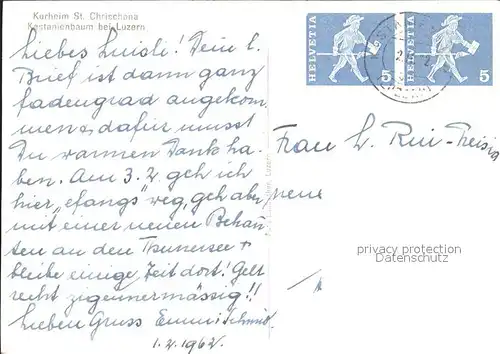 Kurheim St. Chrischona
Kastanienbaum bei Luzern
HELVETIA 5
HELVETIA 5
Liebes Luisli! Dein l.
Brief ist dann ganz
fadengrad angekom
men & dafür musst
Du warmen Dank ha-
ben. Am 3.2. geh ich
hier "efangs" weg, geh aber
mit einer neuen
ten an den Thunersee +
bleibe einige Zeit dort! Gelt
recht zigeunermässig!!
Lieben Gruss Emmi Schmid.
1.2.1962.
Frau L.
privacy protection
Datenschutz